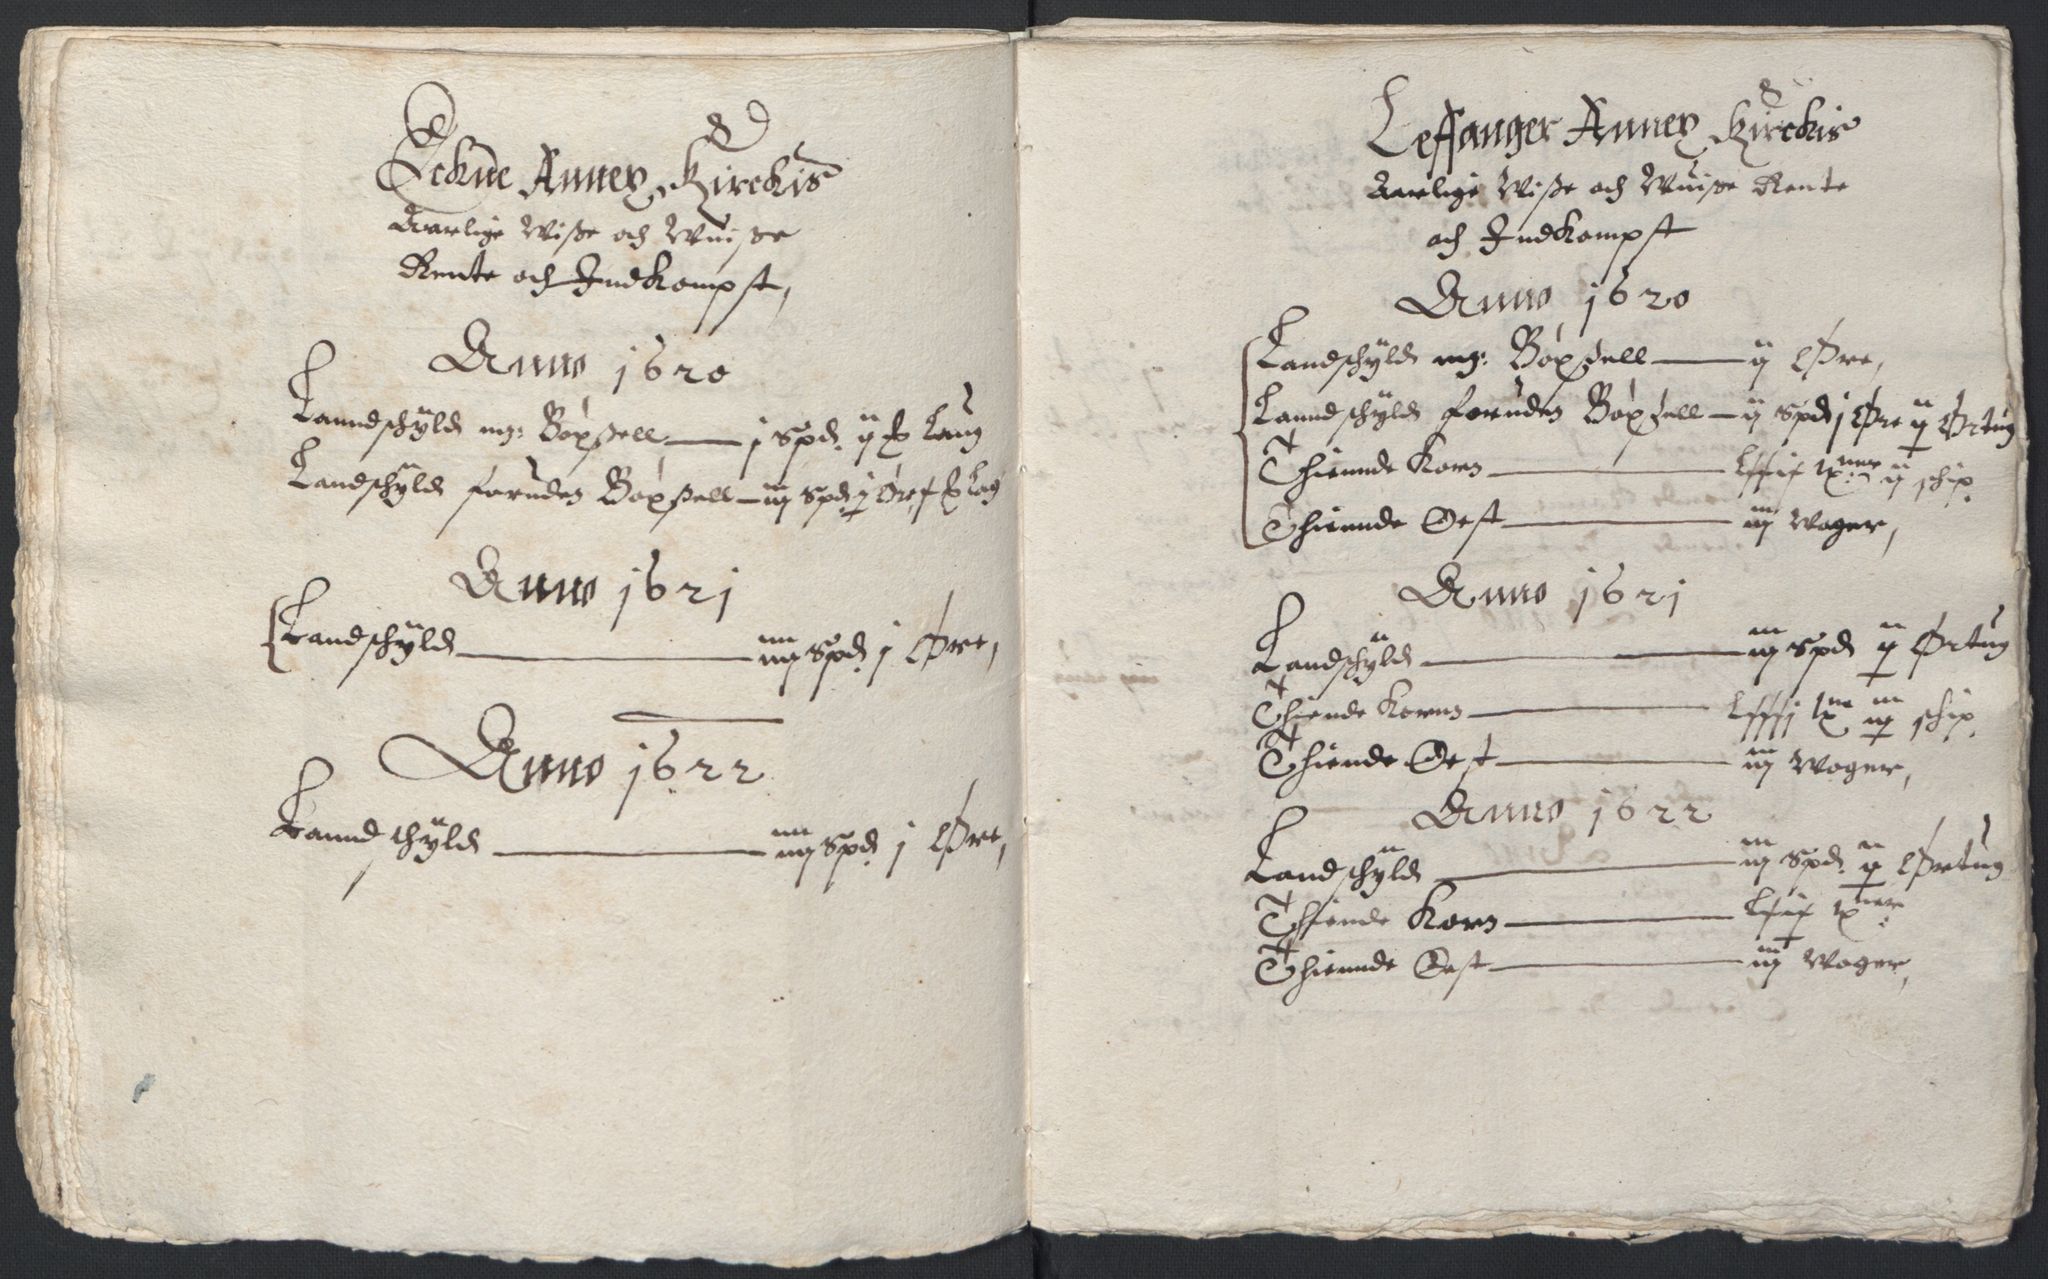 Eckne Annex Kirckis
Aarlige Wiße och Wuiße
Rente och Indkompst,
Anno 1620
Lanndschÿld mz: Böxßell — j Spd. ij
Landschÿld foruden Böxßell — iij Spd
Anno 1621
Landschÿld — iiij Spd j Øre,
Anno 1622
Lanndschÿld — iiij Spd j Øre,
Leffanger Annex Kirckis
Aarlige Wiße och Wuiße Rente
och Indkompst
Anno 1620
Landschÿld mz: Böxßell — ij Øre,
Lanndschÿld foruden Böxßell — ij Spd j Øre ij Ørtug
Thiennde Korn — ij schip.
Thiennde Oest — iij Woger,
Anno 1621
Landschÿld — iij Spd ij Ørtug
Thiende Korn — iij schip.
Thiende Oest — iij Woger,
Anno 1622
Landschÿld — iij Spd. ij Ørtug
Thiende Korn —
Thiennde Oest — iij Woger,